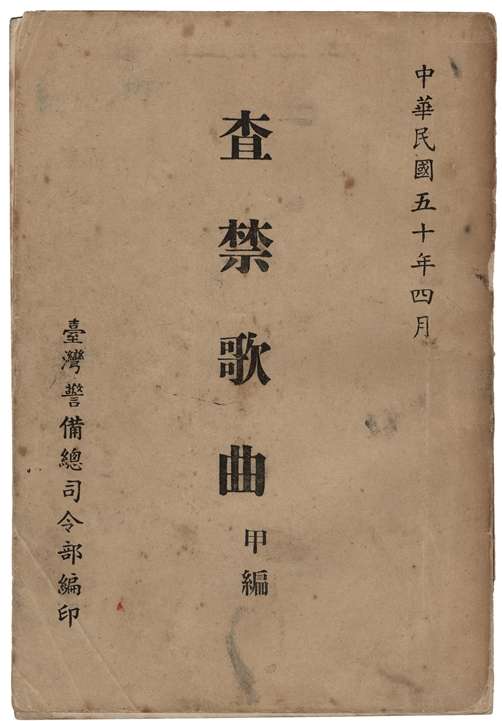 中華民國五十年四月
查禁歌曲 甲編
臺灣警備總司令部編印